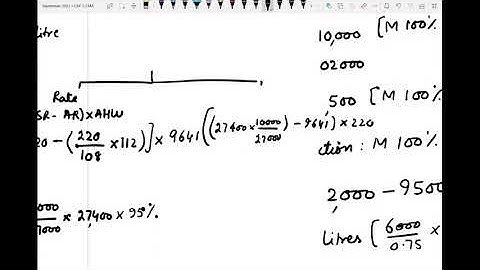 litre
Rate
SR - AR) x AHW
20 - (220/108 x 112)] x 9641 ((27400 x 10000/27000) - 9641) x 220
000/7000 x 27,400 x 95%.
10,000 [M 100%
02000
,500 [M 100%
ction : M 100%
2,000 - 9500
litres [6000/0.75 x